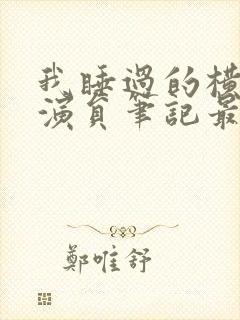 我睡過的橫
演員筆記最
鄭唯舒